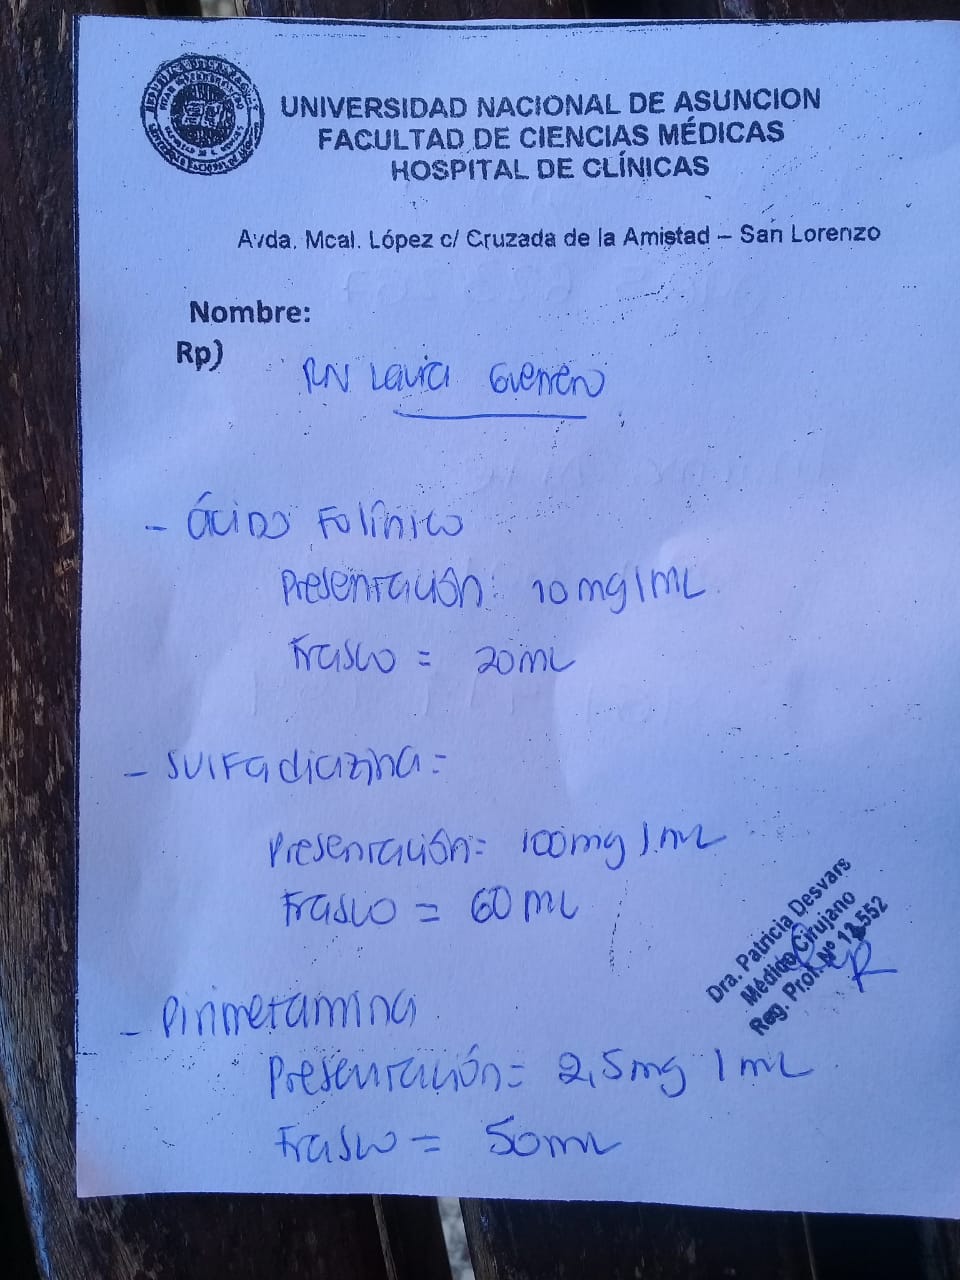 UNIVERSIDAD NACIONAL DE ASUNCION
FACULTAD DE CIENCIAS MÉDICAS
HOSPITAL DE CLÍNICAS
Avda. Mcal. López c/ Cruzada de la Amistad – San Lorenzo
Nombre:
Rp)
RN Laura Guerrero
- Ácido Folínico
Presentación: 10mg/mL
Frasco = 20mL
- Sulfadiazina =
Presentación = 100mg/mL
Frasco = 60mL
- Pirimetamina
Presentación = 2,5mg/mL
Frasco = 50mL
Dra. Patricia Desvars
Médico Cirujano
Reg. Prof. Nº